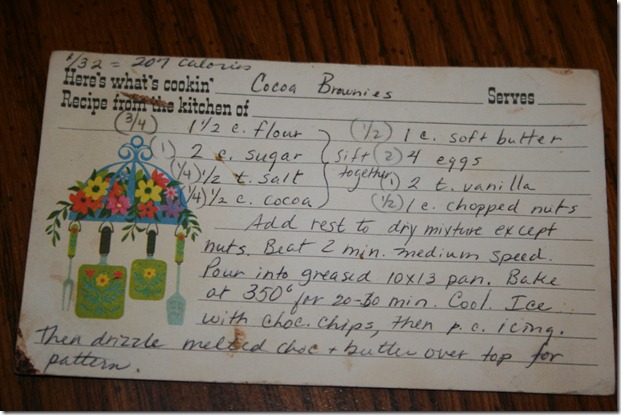 1/32 = 207 calories
Here's what's cookin' Cocoa Brownies Serves
Recipe from the kitchen of
(3/4) 1 1/2 c. flour (1/2) 1 c. soft butter
(1) 2 c. sugar sift (2) 4 eggs
(1/4) 1/2 t. salt together (1) 2 t. vanilla
(1/4) 1/2 c. cocoa (1/2) 1 c. chopped nuts
Add rest to dry mixture except
nuts. Beat 2 min. medium speed.
Pour into greased 10x13 pan. Bake
at 350° for 20-30 min. Cool. Ice
with choc. chips, then p.c. icing.
Then drizzle melted choc + butter over top for
pattern.